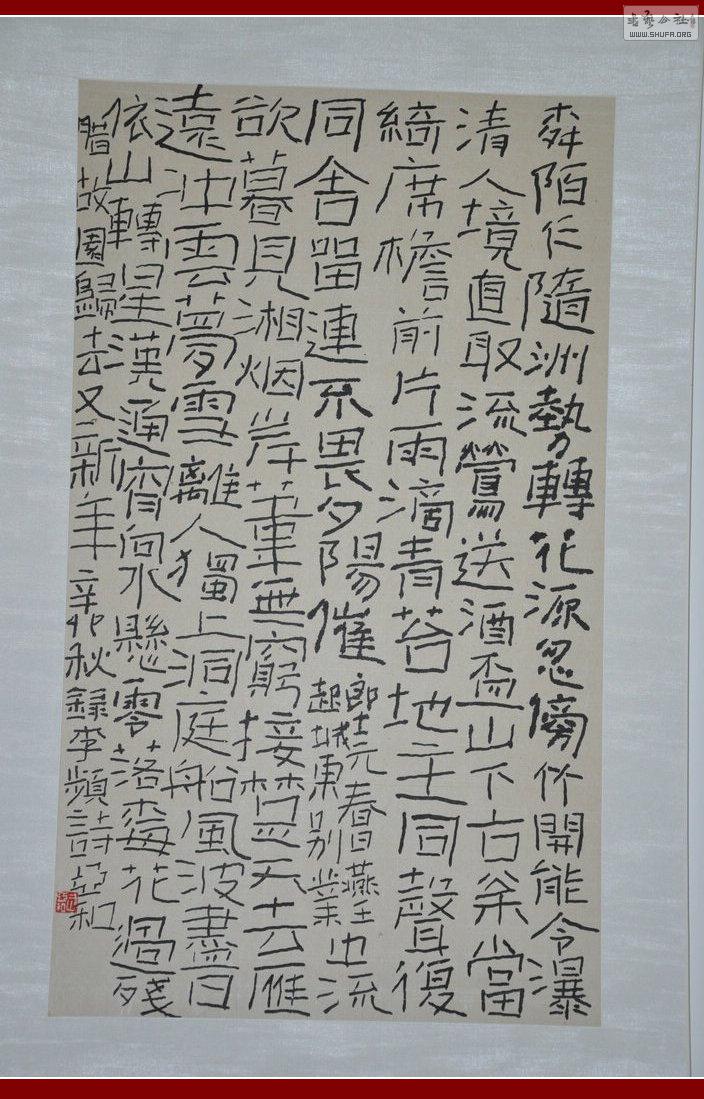 陌乍隨洲勢轉花源忽傍竹開能令瀑
清人境直取流鶯送酒盃山下古松當
綺席檐前片雨滴青苔地主同聲復
同舍留連不畏夕陽催
郎士元春日燕王
起城東別業
中流
欲暮見湘烟岸葦無窮接楚天去雁
遠沖雲夢雪離人獨上洞庭船風波盡日
依山轉星漢通宵向水懸零落梅花過殘
臘故園歸去又新年辛卯秋錄李頻詩亞和
書藝公社
WWW.SHUFA.ORG